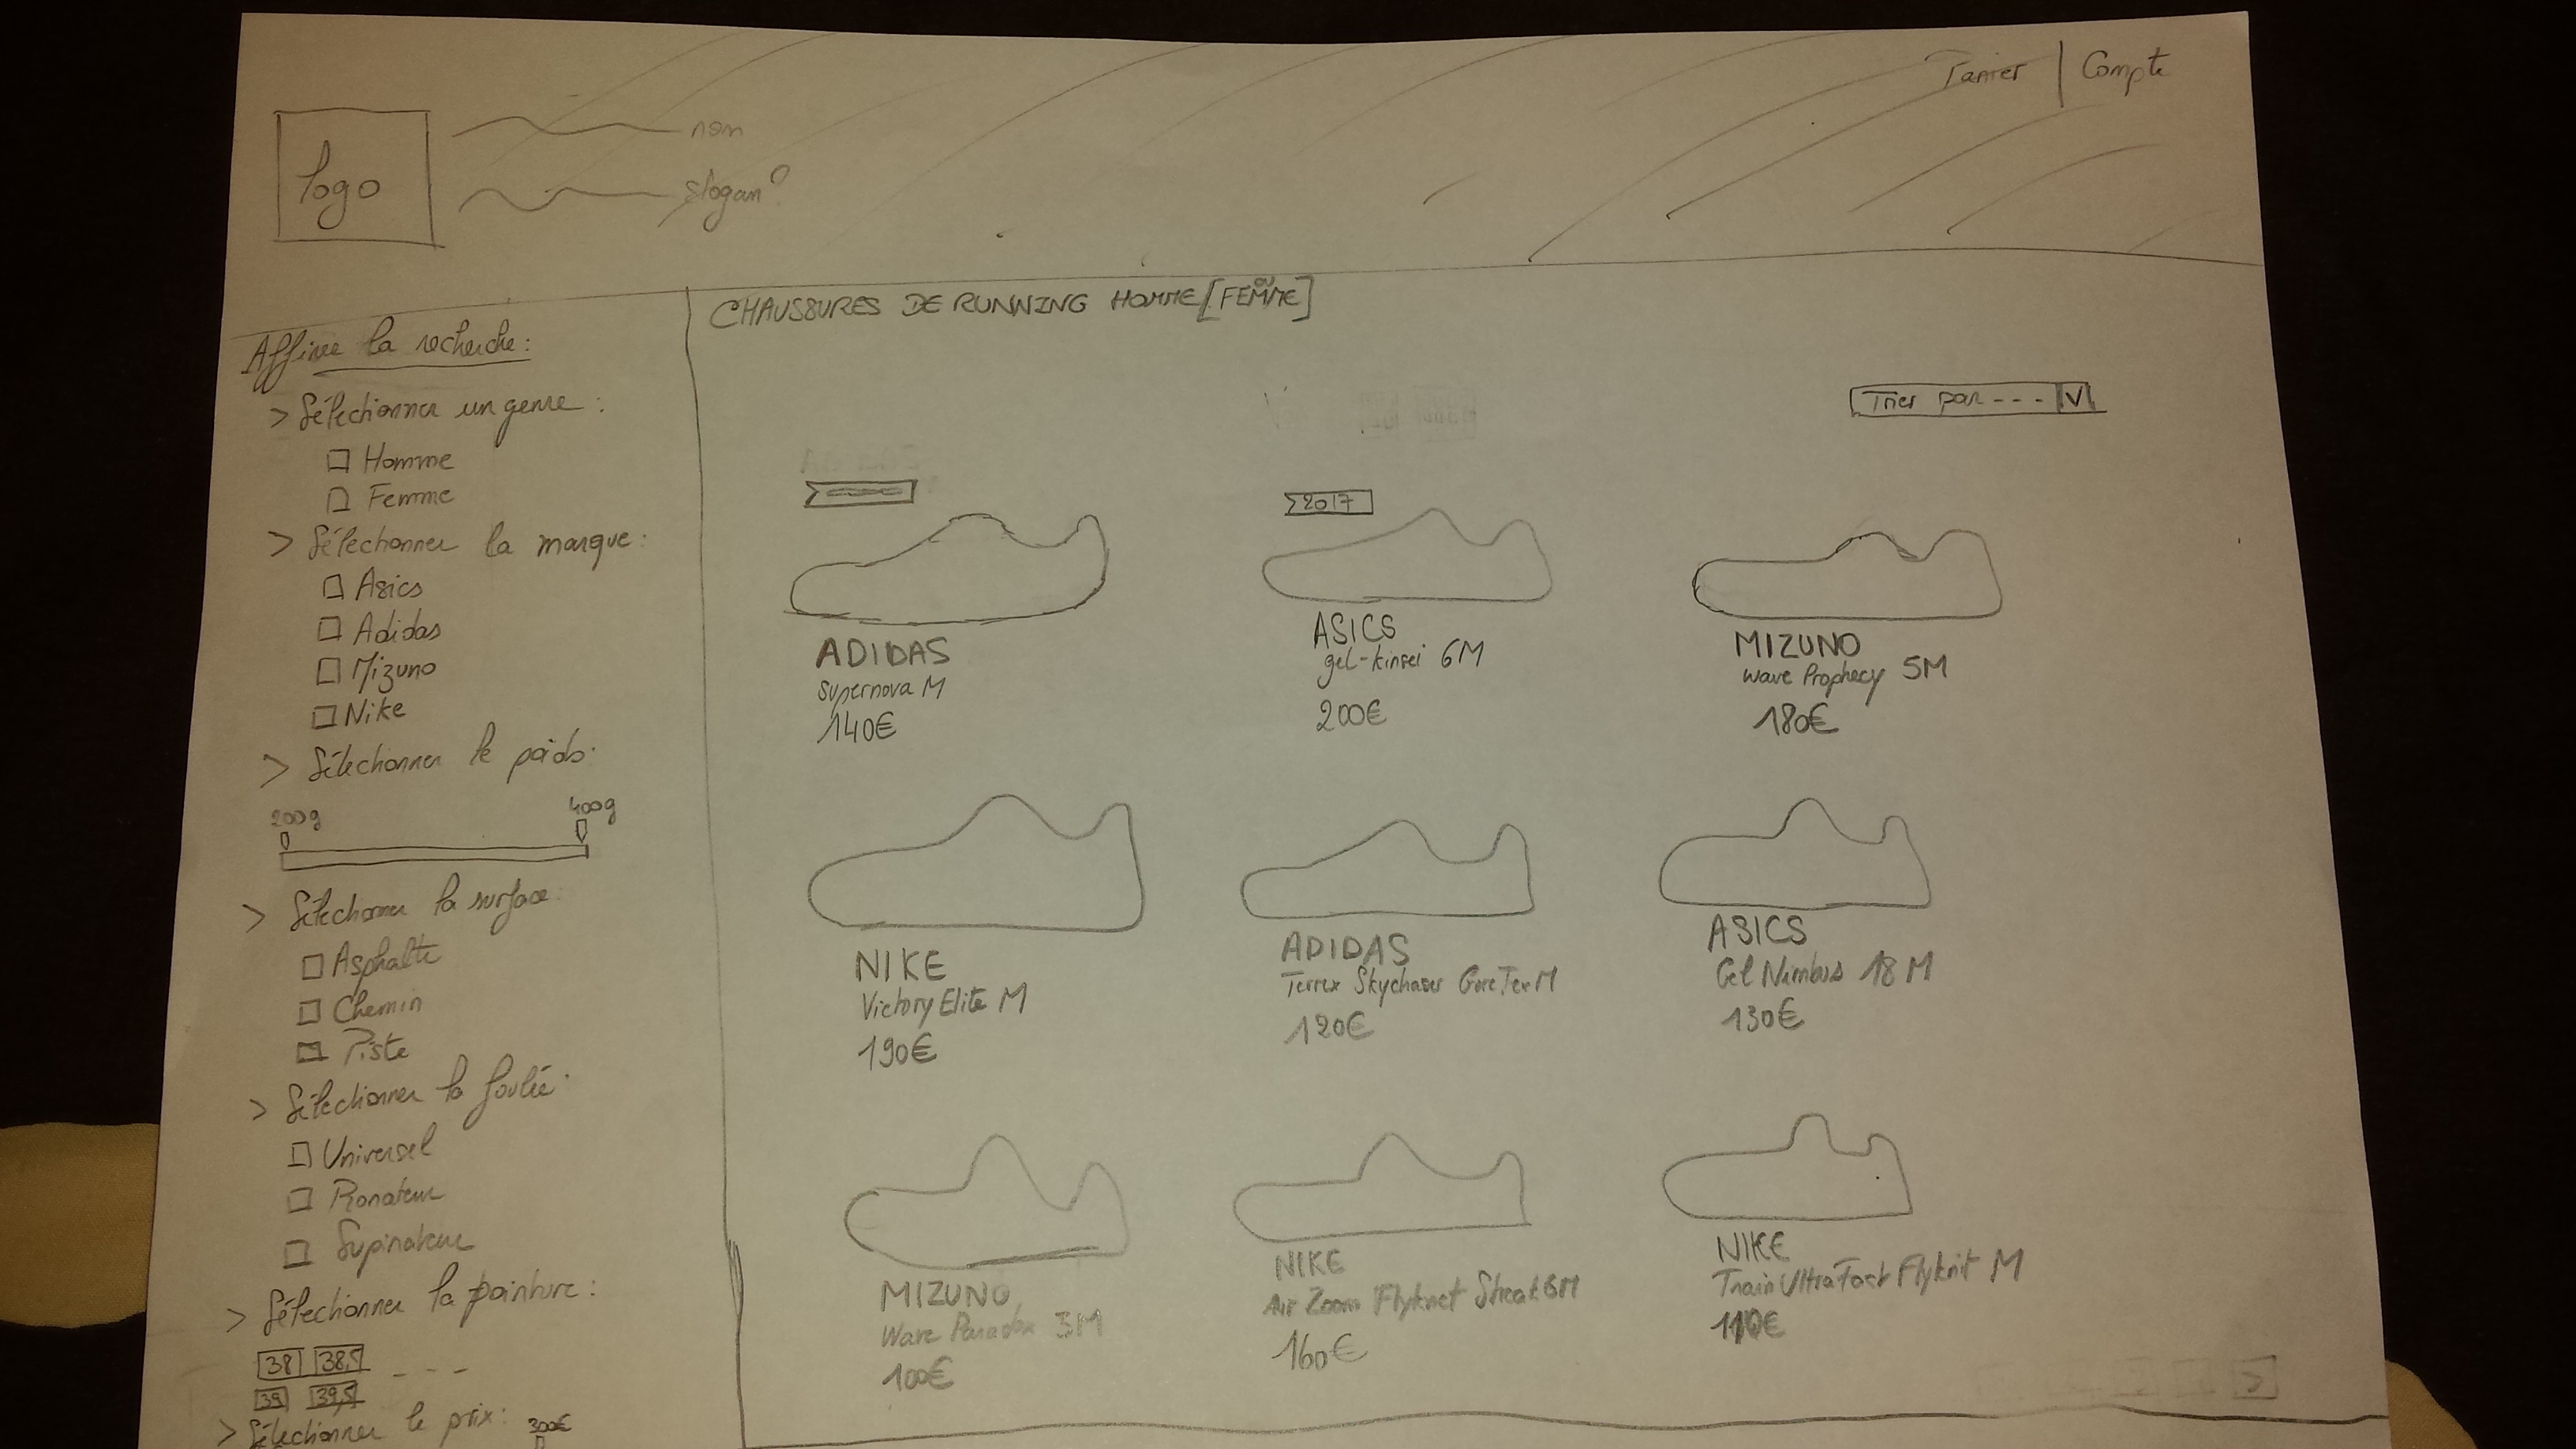 Panier | Compte
logo
nom
slogan?
CHAUSSURES DE RUNNING HOMME [ou FEMME]
Trier par --- V
Affiner la recherche :
> Sélectionner un genre :
Homme
Femme
> Sélectionner la marque :
Asics
Adidas
Mizuno
Nike
> Sélectionner le poids :
200g 400g
> Sélectionner la surface :
Asphalte
Chemin
Piste
> Sélectionner la foulée :
Universel
Pronateur
Supinateur
> Sélectionner la pointure :
38 38,5 ---
39 39,5
> Sélectionner le prix :
300€
ADIDAS
Supernova M
140€
2017
ASICS
gel-kinsei 6M
200€
MIZUNO
Wave Prophecy 5M
180€
NIKE
Victory Elite M
190€
ADIDAS
Terrex Skychaser GoreTex M
120€
ASICS
Gel Nimbus 18 M
130€
MIZUNO
Wave Paradox 3M
100€
NIKE
Air Zoom Flyknet Streak 6M
160€
NIKE
Train Ultra Fast Flyknit M
110€
>